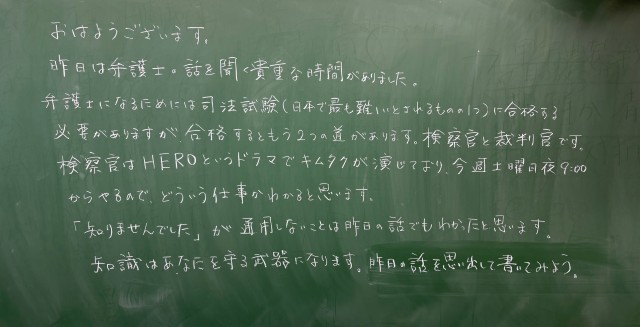 おはようございます。
昨日は弁護士の話を聞く貴重な時間がありました。
弁護士になるためには司法試験(日本で最も難しいとされるものの1つ)に合格する
必要がありますが合格するともう2つの道があります。検察官と裁判官です。
検察官はHEROというドラマでキムタクが演じており、今週土曜日夜9:00
からやるので、どういう仕事かわかると思います。
「知りませんでした」が通用しないことは昨日の話でもわかったと思います。
知識はあなたを守る武器になります。昨日の話を思い出して書いてみよう。